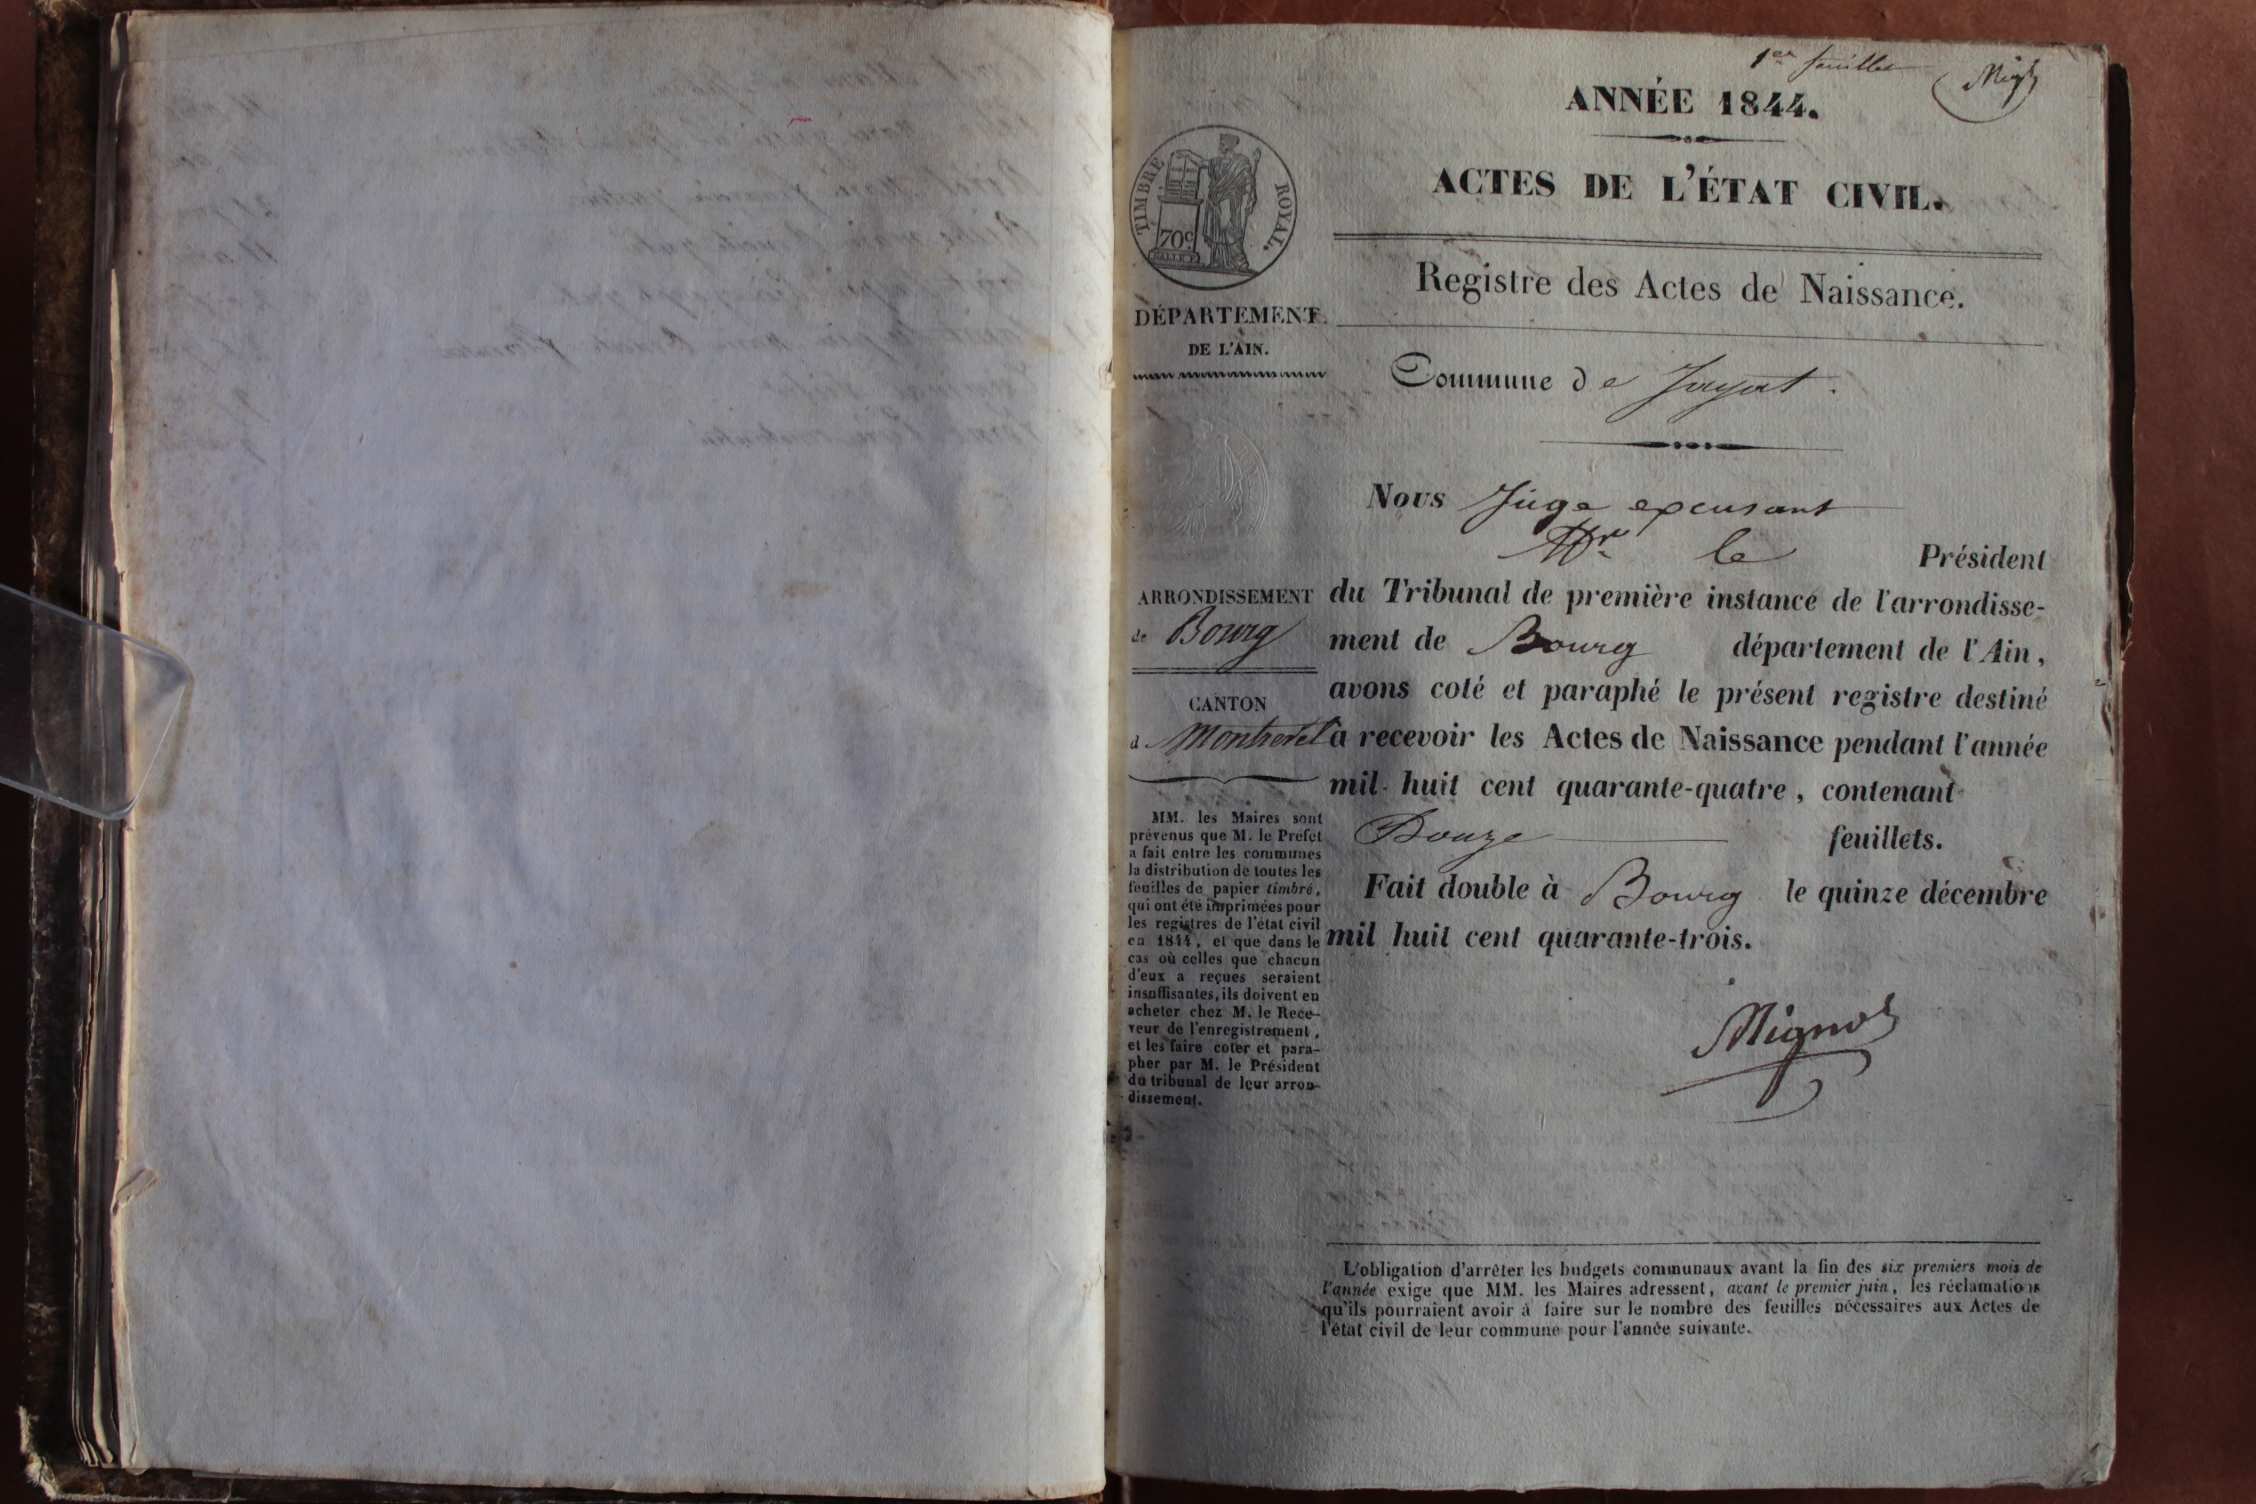 1er feuillet
ANNÉE 1844.
ACTES DE L'ÉTAT CIVIL.
TIMBRE ROYAL.
70c
DÉPARTEMENT
DE L'AIN.
Registre des Actes de Naissance.
Commune de Jayat.
Nous Juge excusant
Mr le Président
du Tribunal de première instance de l'arrondisse-
ment de Bourg département de l'Ain,
avons coté et paraphé le présent registre destiné
à recevoir les Actes de Naissance pendant l'année
mil huit cent quarante-quatre, contenant
Douze feuillets.
Fait double à Bourg le quinze décembre
mil huit cent quarante-trois.
Mignot
ARRONDISSEMENT
de Bourg
CANTON
d Montrevel
MM. les Maires sont
prévenus que M. le Préfet
a fait entre les communes
la distribution de toutes les
feuilles de papier timbré,
qui ont été imprimées pour
les registres de l'état civil
en 1844, et que dans le
cas où celles que chacun
d'eux a reçues seraient
insuffisantes, ils doivent en
acheter chez M. le Rece-
veur de l'enregistrement,
et les faire coter et para-
pher par M. le Président
du tribunal de leur arron-
dissement.
L'obligation d'arrêter les budgets communaux avant la fin des six premiers mois de
l'année exige que MM. les Maires adressent, avant le premier juin, les réclamations
qu'ils pourraient avoir à faire sur le nombre des feuilles nécessaires aux Actes de
l'état civil de leur commune pour l'année suivante.